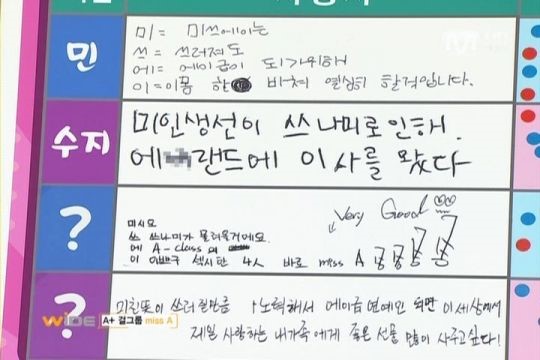 민
미= 미쓰에이는
쓰= 쓰러져도
에= 에이급이 되기위해
이= 이몸 한 바쳐 열심히 할것입니다.
수지
미인생선이 쓰나미로인해.
에랜드에 이사를 왔다
?
Very Good
미시요
쓰 쓰나미가 몰려올거에요
에 A-class
이 이쁘구 섹시한 4人 바로 miss A
?
미친듯이 쓰러질만큼 노력해서 에이급연예인 되면 이세상에서
제일 사랑하는 내가족에게 좋은 선물 많이 사주고싶다!
WIDE A+ 걸그룹 miss A